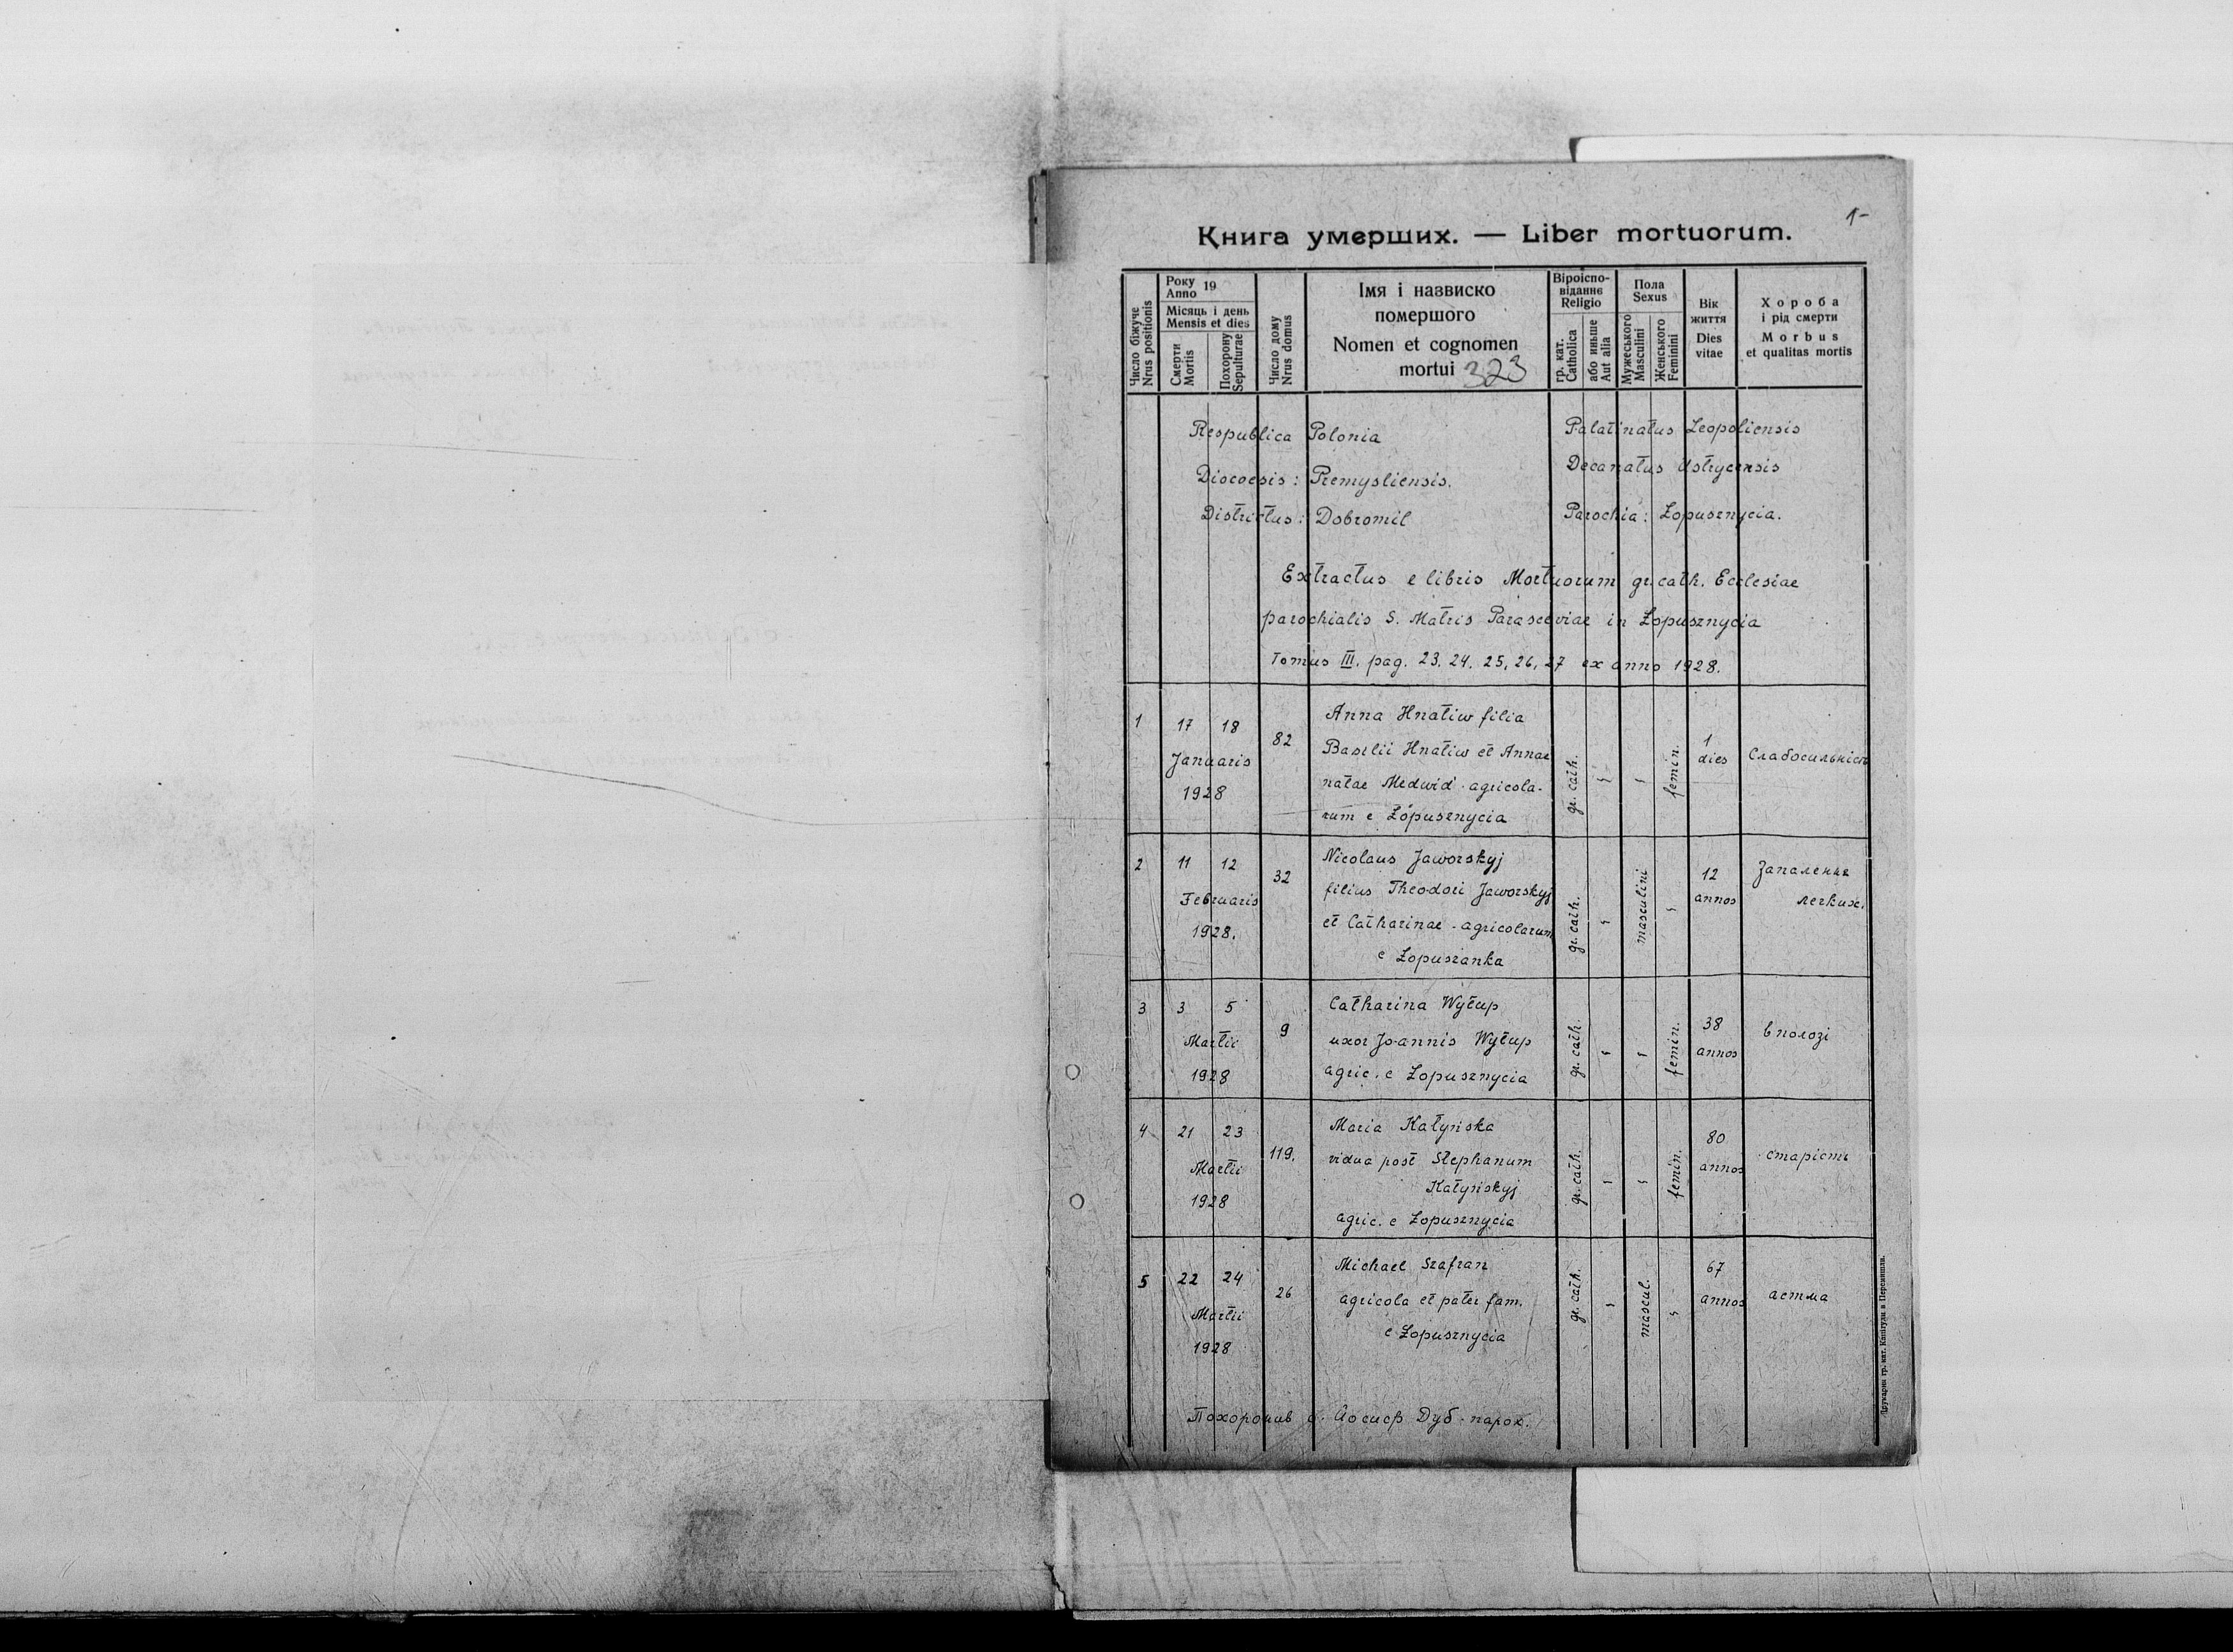 1-
Книга умерших. — Liber mortuorum.
Число біжуче
Nrus positionis
Року
Anno 19
Місяць і день
Mensis et dies
Смерти
Mortis
Похорону
Sepulturae
Число дому
Nrus domus
Імя і назвиско
помершого
Nomen et cognomen
mortui 323
Віроіспо-
віданнє
Religio
гр. кат.
Catholica
або иньше
Aut alia
Пола
Sexus
Мужеського
Masculini
Женського
Feminini
Вік
життя
Dies
vitae
Хороба
і рід смерти
Morbus
et qualitas mortis
Respublica Polonia
Palatinatus Leopoliensis
Diocoesis: Premysliensis.
Decanatus Ustrycensis
Districtus: Dobromil
Parochia: Łopusznycia.
Extractus e libris Mortuorum gr. cath. Ecclesiae
parochialis S. Matris Parasceviae in Łopusznycia
Tomus III. pag. 23, 24, 25, 26, 27 ex anno 1928.
1
17 18
Januaris
1928
82
Anna Hnatiw filia
Basilii Hnatiw et Annae
natae Medwid - agricola-
rum e Łopusznycia
gr. cath.
femin.
1
dies
Слабосильність
2
11 12
Februaris
1928.
32
Nicolaus Jaworskyj
filius Theodori Jaworskyj
et Catharinae - agricolarum
e Łopuszanka
gr. cath.
masculini
12
annos
Запалення
легких.
3
3 5
Martii
1928
9
Catharina Wytup
uxor Joannis Wytup
agric. e Łopusznycia
gr. cath.
femin.
38
annos
в полозі
4
21 23
Martii
1928
119.
Maria Katyńska
vidua post Stephanum
Katyńskyj
agric. e Łopusznycia
gr. cath.
femin.
80
annos
старість
5
22 24
Martii
1928
26
Michael Szafran
agricola et pater fam.
e Łopusznycia
gr. cath.
mascul.
67
annos
астма
Похоронив о. Йосиф Дуб - парох.
Друкарня гр. кат. Капітули в Перемишли.